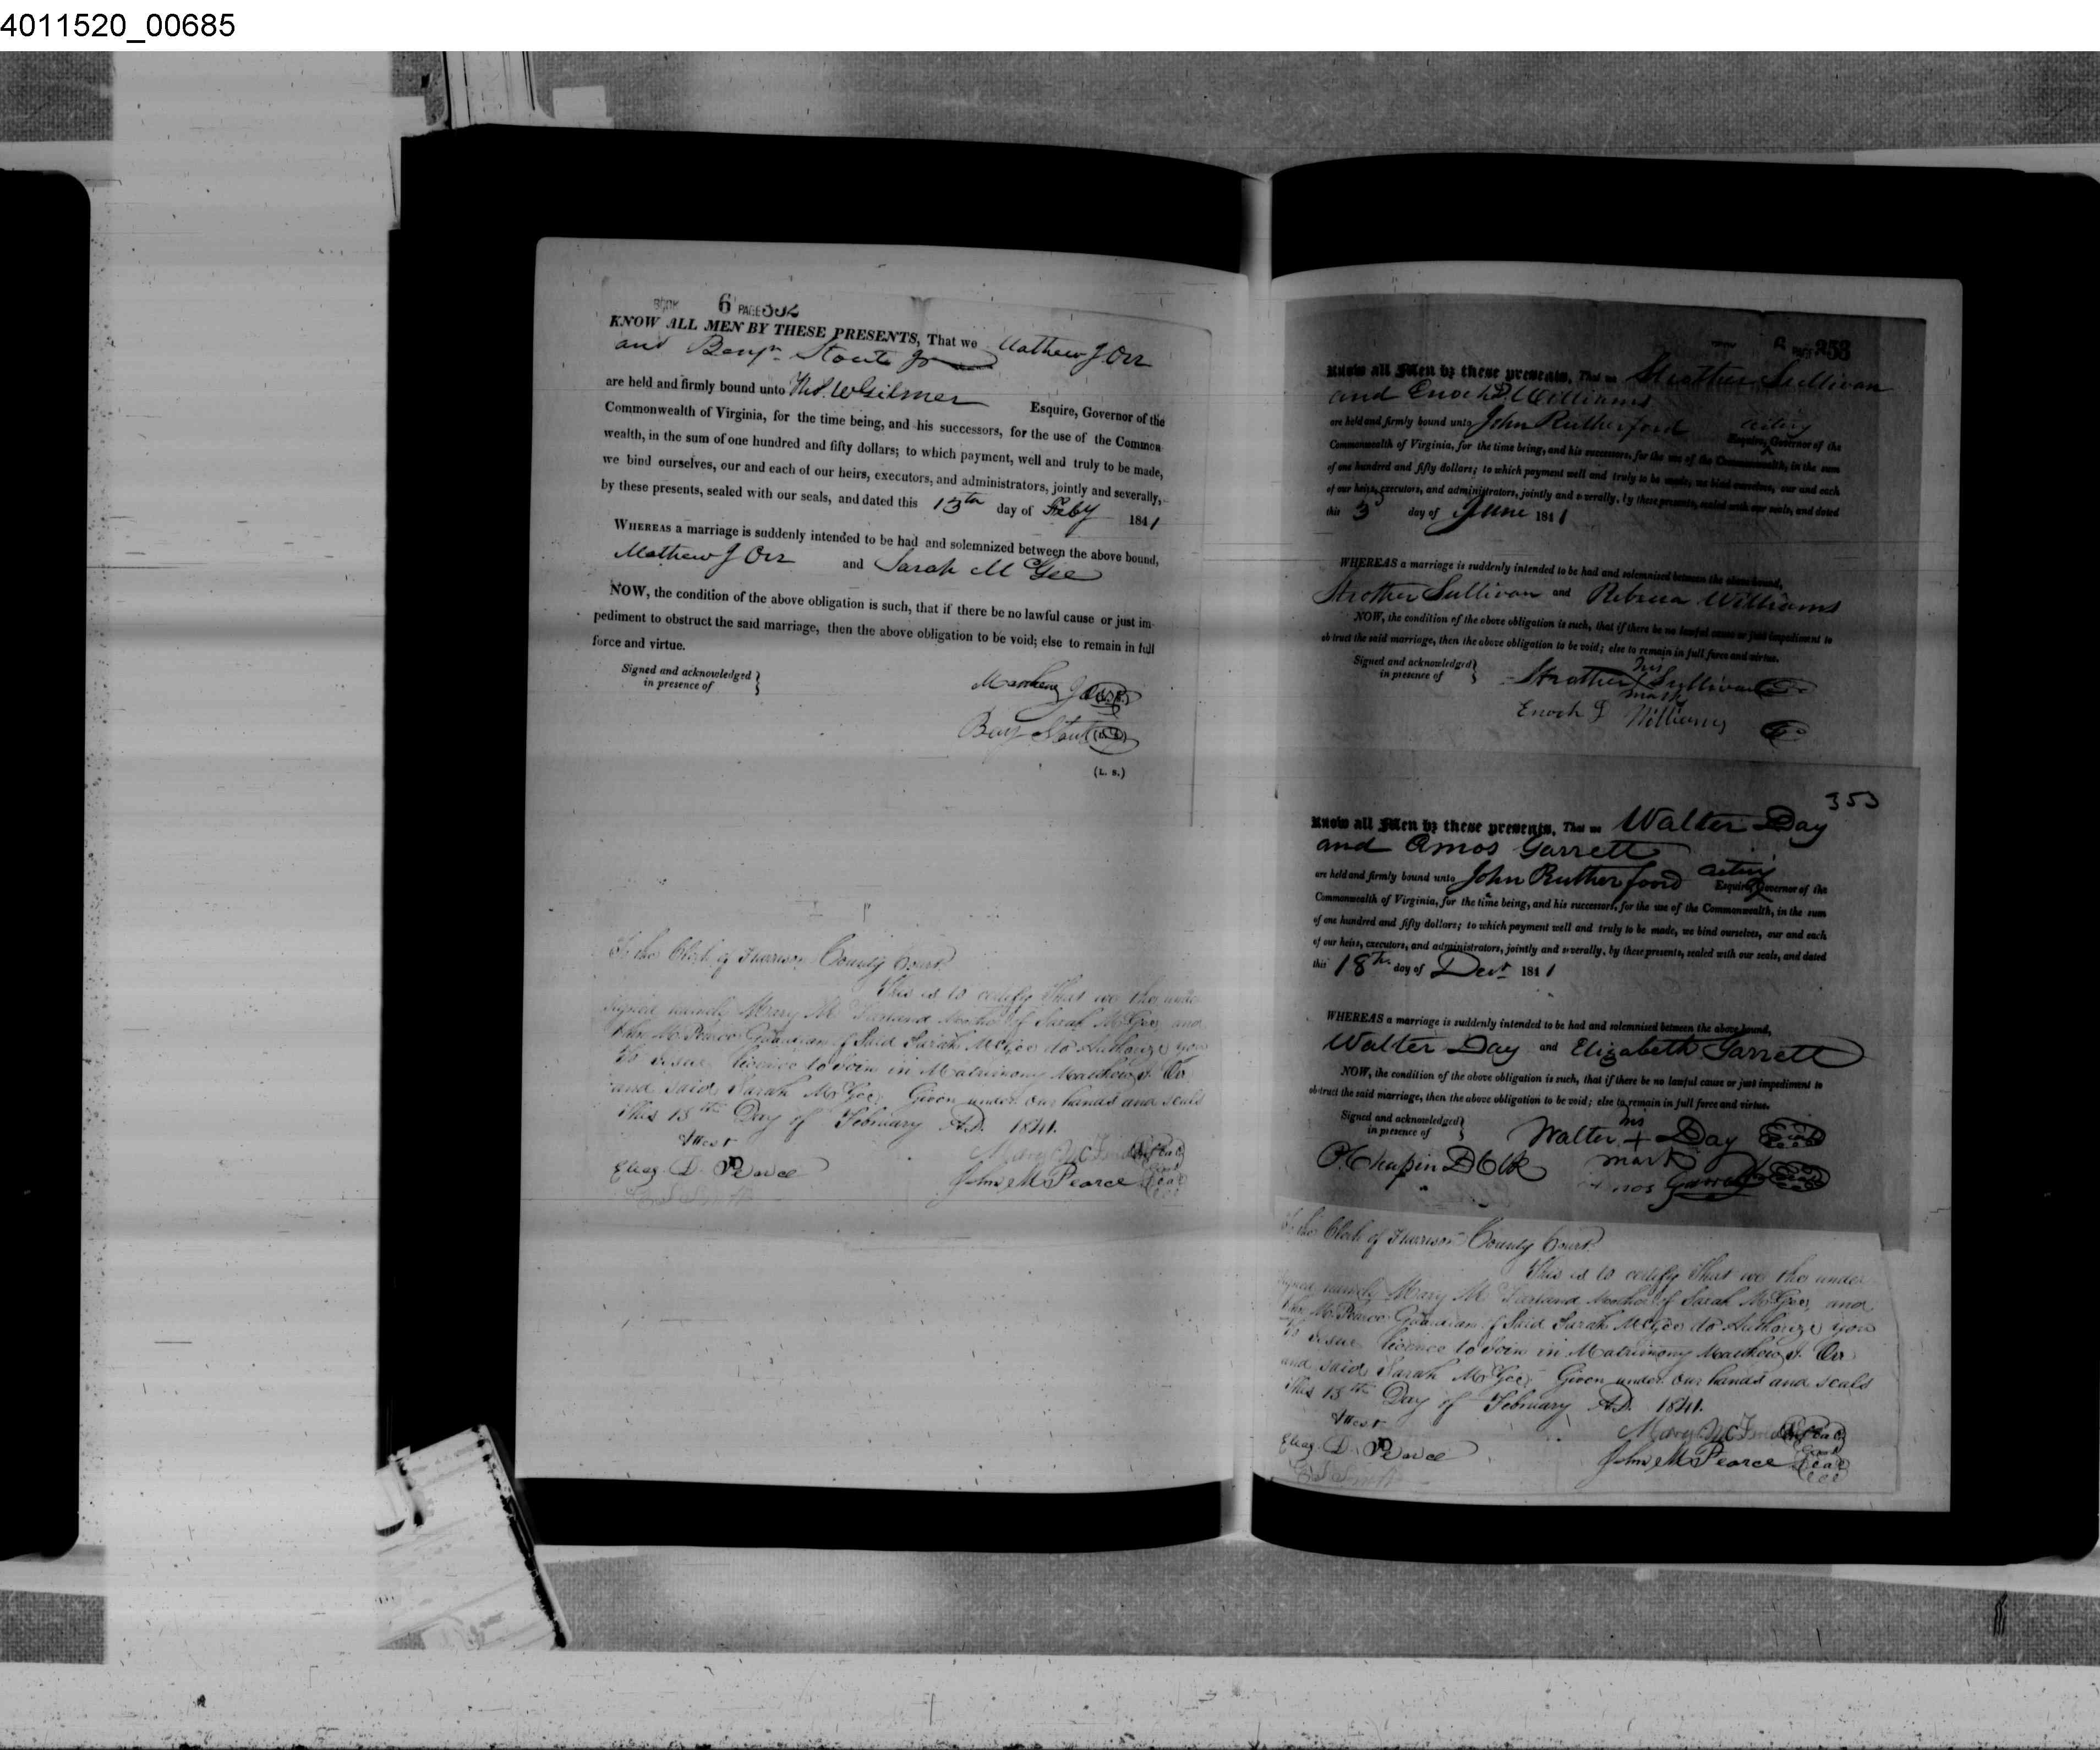 4011520_00685
BOOK 6 PAGE 352
KNOW ALL MEN BY THESE PRESENTS, That we Mathew J Orr
and Benjn Stout Jr
are held and firmly bound unto Thos. W Gilmer Esquire, Governor of the
Commonwealth of Virginia, for the time being, and his successors, for the use of the Common-
wealth, in the sum of one hundred and fifty dollars; to which payment, well and truly to be made,
we bind ourselves, our and each of our heirs, executors, and administrators, jointly and severally,
by these presents, sealed with our seals, and dated this 13th day of Feby 1841
WHEREAS a marriage is suddenly intended to be had and solemnized between the above bound,
Mathew J Orr and Sarah McGee
NOW, the condition of the above obligation is such, that if there be no lawful cause or just im-
pediment to obstruct the said marriage, then the above obligation to be void; else to remain in full
force and virtue.
Signed and acknowledged
in presence of
Mathew J Orr (L. S.)
Benj Stout Jr (L. S.)
(L. S.)
To the Clerk of Harrison County Court.
This is to certify that we the under
signed namely Mary McFarland Mother of Sarah McGee and
John M. Pearce Guardian of Said Sarah McGee do Authorize you
to issue licence to Join in Matrimony Matthew J. Orr
and said Sarah McGee. Given under our hands and seals
This 13th Day of February A.D. 1841.
Attest
Eliaz. D. Pearce
John M Pearce Seal
353
Know all Men by these presents, That we Strother Sullivan
and Enoch D. Williams
are held and firmly bound unto John Rutherford acting
Esquire, Governor of the
Commonwealth of Virginia, for the time being, and his successors, for the use of the Commonwealth, in the sum
of one hundred and fifty dollars; to which payment well and truly to be made, we bind ourselves, our and each
of our heirs, executors, and administrators, jointly and severally, by these presents, sealed with our seals, and dated
this 3 day of June 1841
WHEREAS a marriage is suddenly intended to be had and solemnised between the above bound,
Strother Sullivan and Rebecca Williams
NOW, the condition of the above obligation is such, that if there be no lawful cause or just impediment to
obstruct the said marriage, then the above obligation to be void; else to remain in full force and virtue.
Signed and acknowledged
in presence of
his
Strother X Sullivan
mark
Enoch D Williams
353
Know all Men by these presents, That we Walter Day
and Amos Garrett
are held and firmly bound unto John Rutherfoord acting
Esquire, Governor of the
Commonwealth of Virginia, for the time being, and his successors, for the use of the Commonwealth, in the sum
of one hundred and fifty dollars; to which payment well and truly to be made, we bind ourselves, our and each
of our heirs, executors, and administrators, jointly and severally, by these presents, sealed with our seals, and dated
this 18th day of Decr 1841
WHEREAS a marriage is suddenly intended to be had and solemnised between the above bound,
Walter Day and Elizabeth Garrett
NOW, the condition of the above obligation is such, that if there be no lawful cause or just impediment to
obstruct the said marriage, then the above obligation to be void; else to remain in full force and virtue.
Signed and acknowledged
in presence of
his
Walter + Day Seal
mark
P. Chapin D Clk
Amos Garrett Seal
To the Clerk of Harrison County Court.
This is to certify that we the under
signed namely Mary McFarland Mother of Sarah McGee and
John M. Pearce Guardian of Said Sarah McGee do Authorize you
to issue licence to Join in Matrimony Matthew J. Orr
and said Sarah McGee. Given under our hands and seals
This 13th Day of February A.D. 1841.
Attest
Eliaz. D. Pearce
John M Pearce Seal